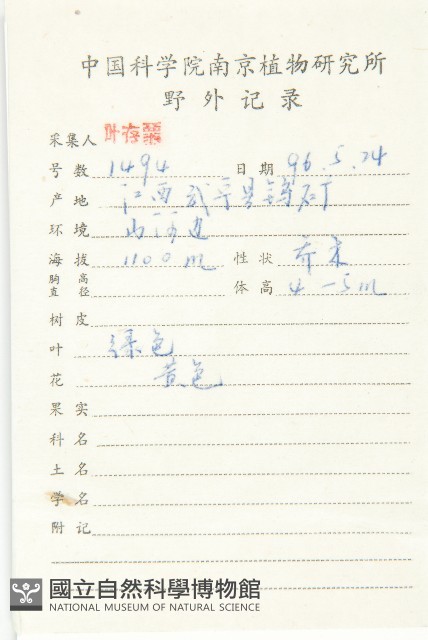 中国科学院南京植物研究所
野外记录
采集人 叶存粟
号数 1494 日期 96.5.24
产地 江西武宁县
环境 山河边
海拔 1100m 性状 乔木
胸高直径 体高 4—5m
树皮
叶 绿色
花 黄色
果实
科名
土名
学名
附记
國立自然科學博物館
NATIONAL MUSEUM OF NATURAL SCIENCE